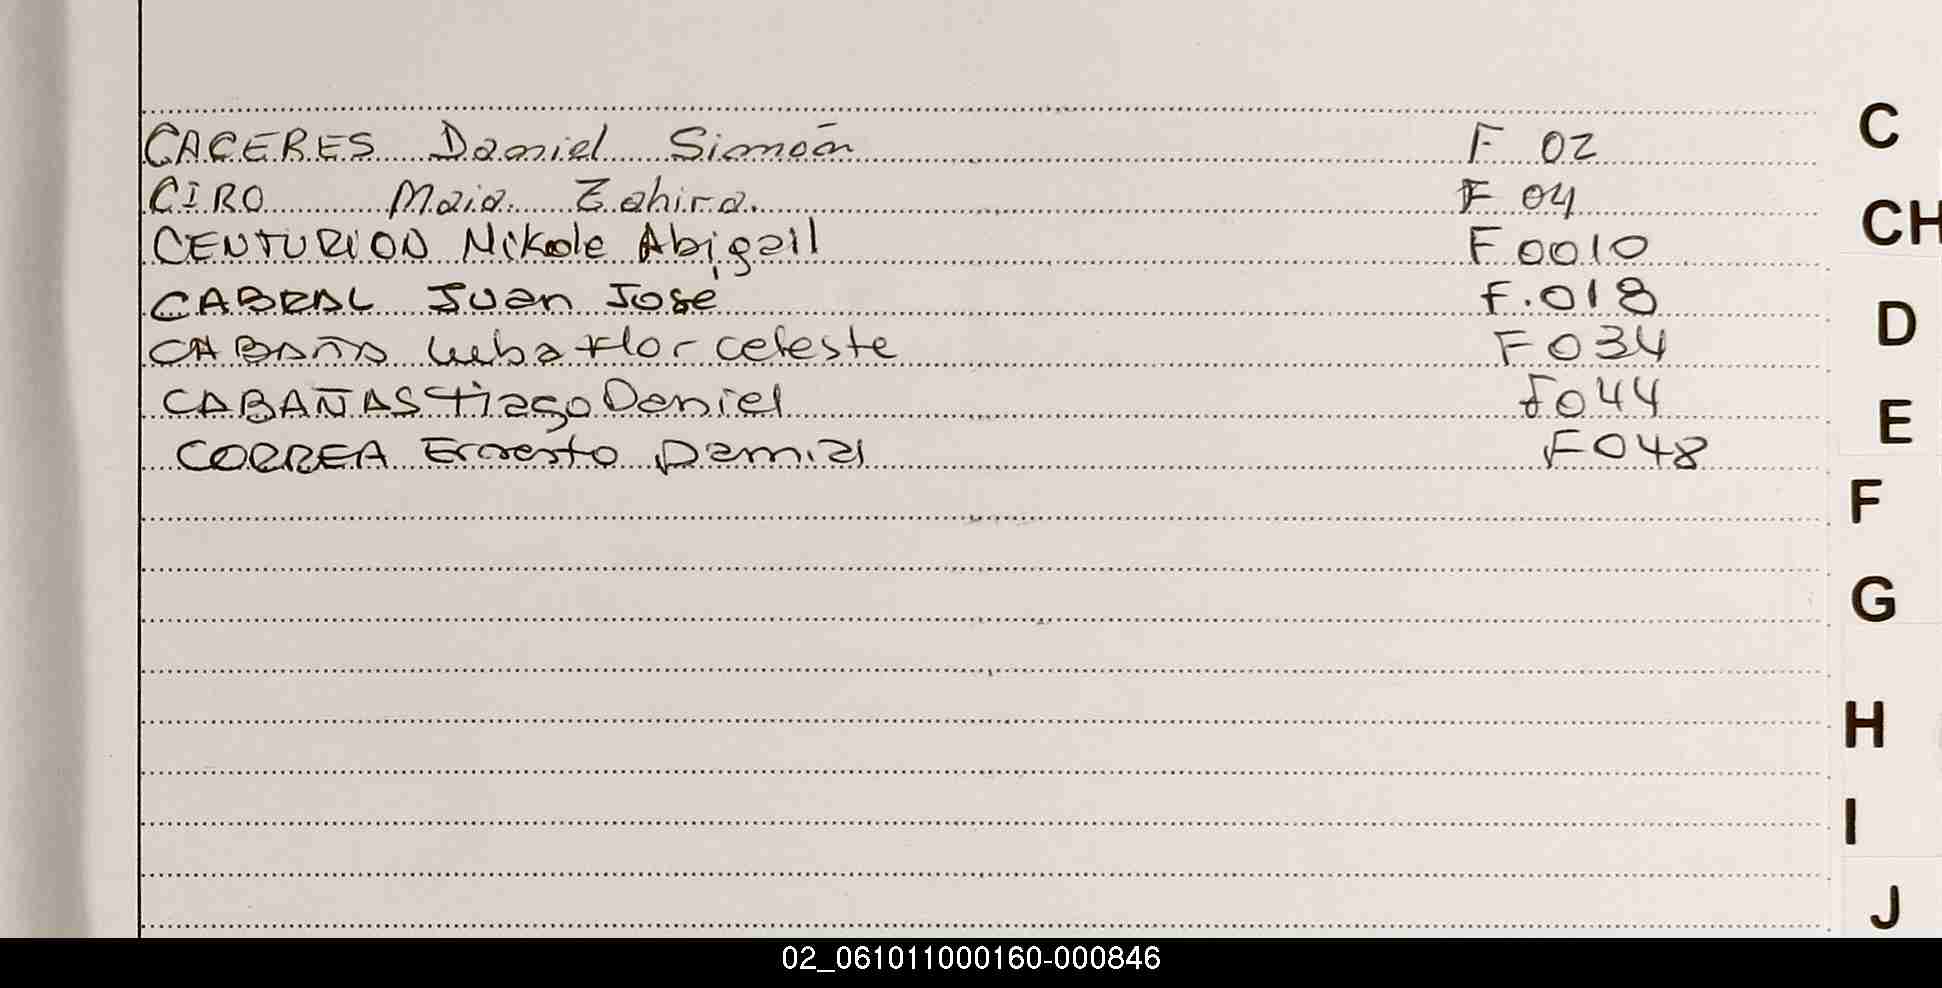 CACERES Daniel Simón F 02
CIRO Maia Zahira F 04
CENTURION Nikole Abigail F 0010
CABRAL Juan José F.018
CABAÑA Luba Flor celeste F034
CABAÑAS Tiago Daniel F044
CORREA Ernesto Damial F048
C
CH
D
E
F
G
H
I
J
02_061011000160-000846